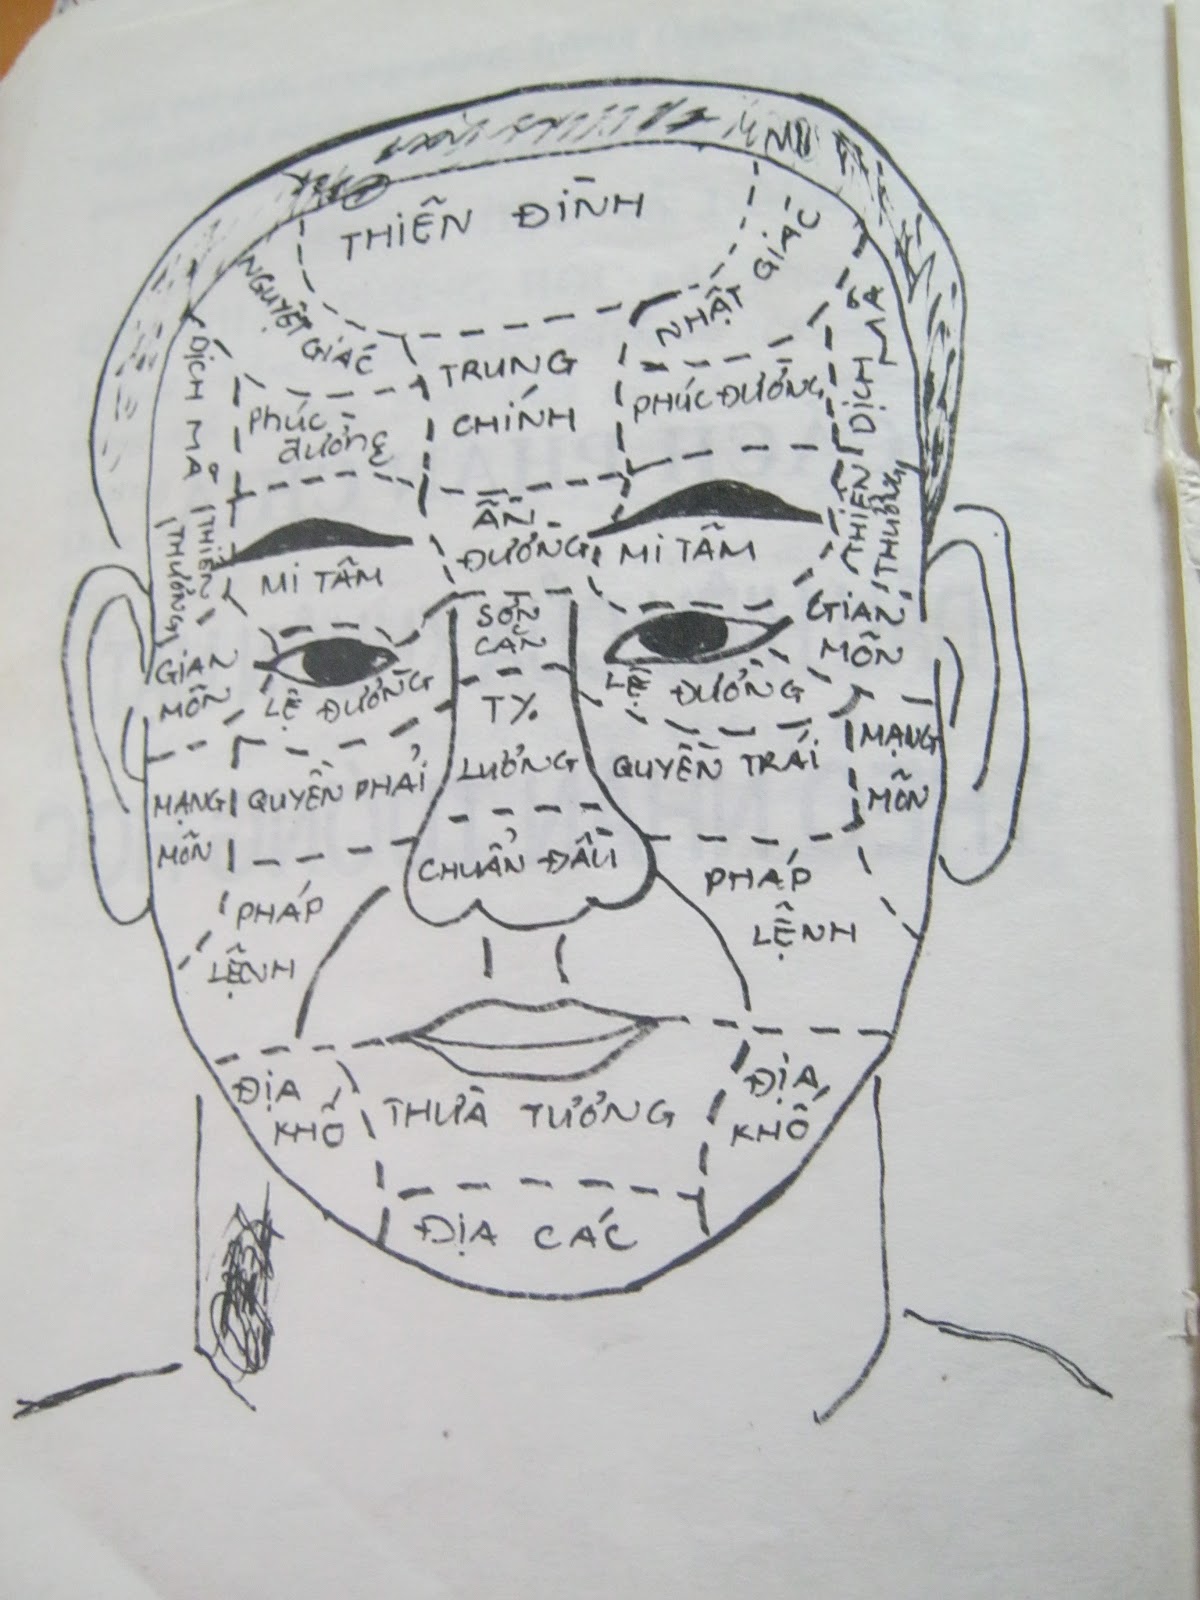 THIÊN ĐÌNH
NGUYỆT GIÁC
NHẬT GIÁC
DỊCH MÃ
TRUNG
CHÍNH
DỊCH MÃ
Phúc
đường
PHÚC ĐƯỜNG
THIÊN
THƯƠNG
ẤN
ĐƯỜNG
THIÊN
THƯƠNG
MI TÂM
MI TÂM
SƠN
CĂN
GIAN
MÔN
GIAN
MÔN
LỆ ĐƯỜNG
LỆ ĐƯỜNG
TỴ
LƯƠNG
MẠNG
MÔN
QUYỀN PHẢI
QUYỀN TRÁI
MẠNG
MÔN
CHUẨN ĐẦU
PHÁP
LỆNH
PHÁP
LỆNH
ĐỊA
KHỐ
THƯÀ TƯƠNG
ĐỊA
KHỐ
ĐỊA CÁC